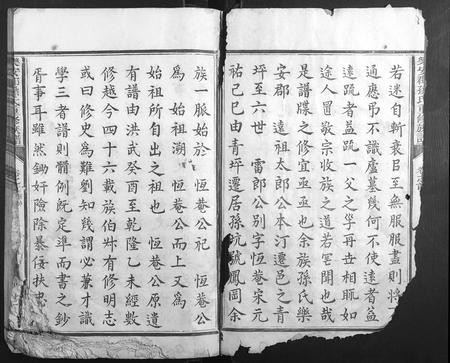 若迷自斬袁⾅至無服服盡則將
適應弔不識廬墓幾何不使遠者益
遠疏者益疏一父之孚再世相眂如
途人置敬宗收族之道若罔聞也哉
是譜牒之修宜亟亟也余族孫氏樂
安郡 遠祖太郎公本汀遷邑之青
坪至六世 雷郎公别字恒菴宋元
祐己巳由青坪遷居孫坑號鳳岡余
族一脈始於 恒菴公祀 恒菴公
為 始祖溯 恒菴公而上又為
始祖所自出之祖也 恒菴公原遺
有譜由洪武癸酉至乾隆乙未經數
修越今四十六載族伯叔有修明志
或曰修史為難劉知幾謂必兼才識
學三者譜則髓例旣定準而書之鈔
胥事耳雖然鋤奸險除暴佞扶忠